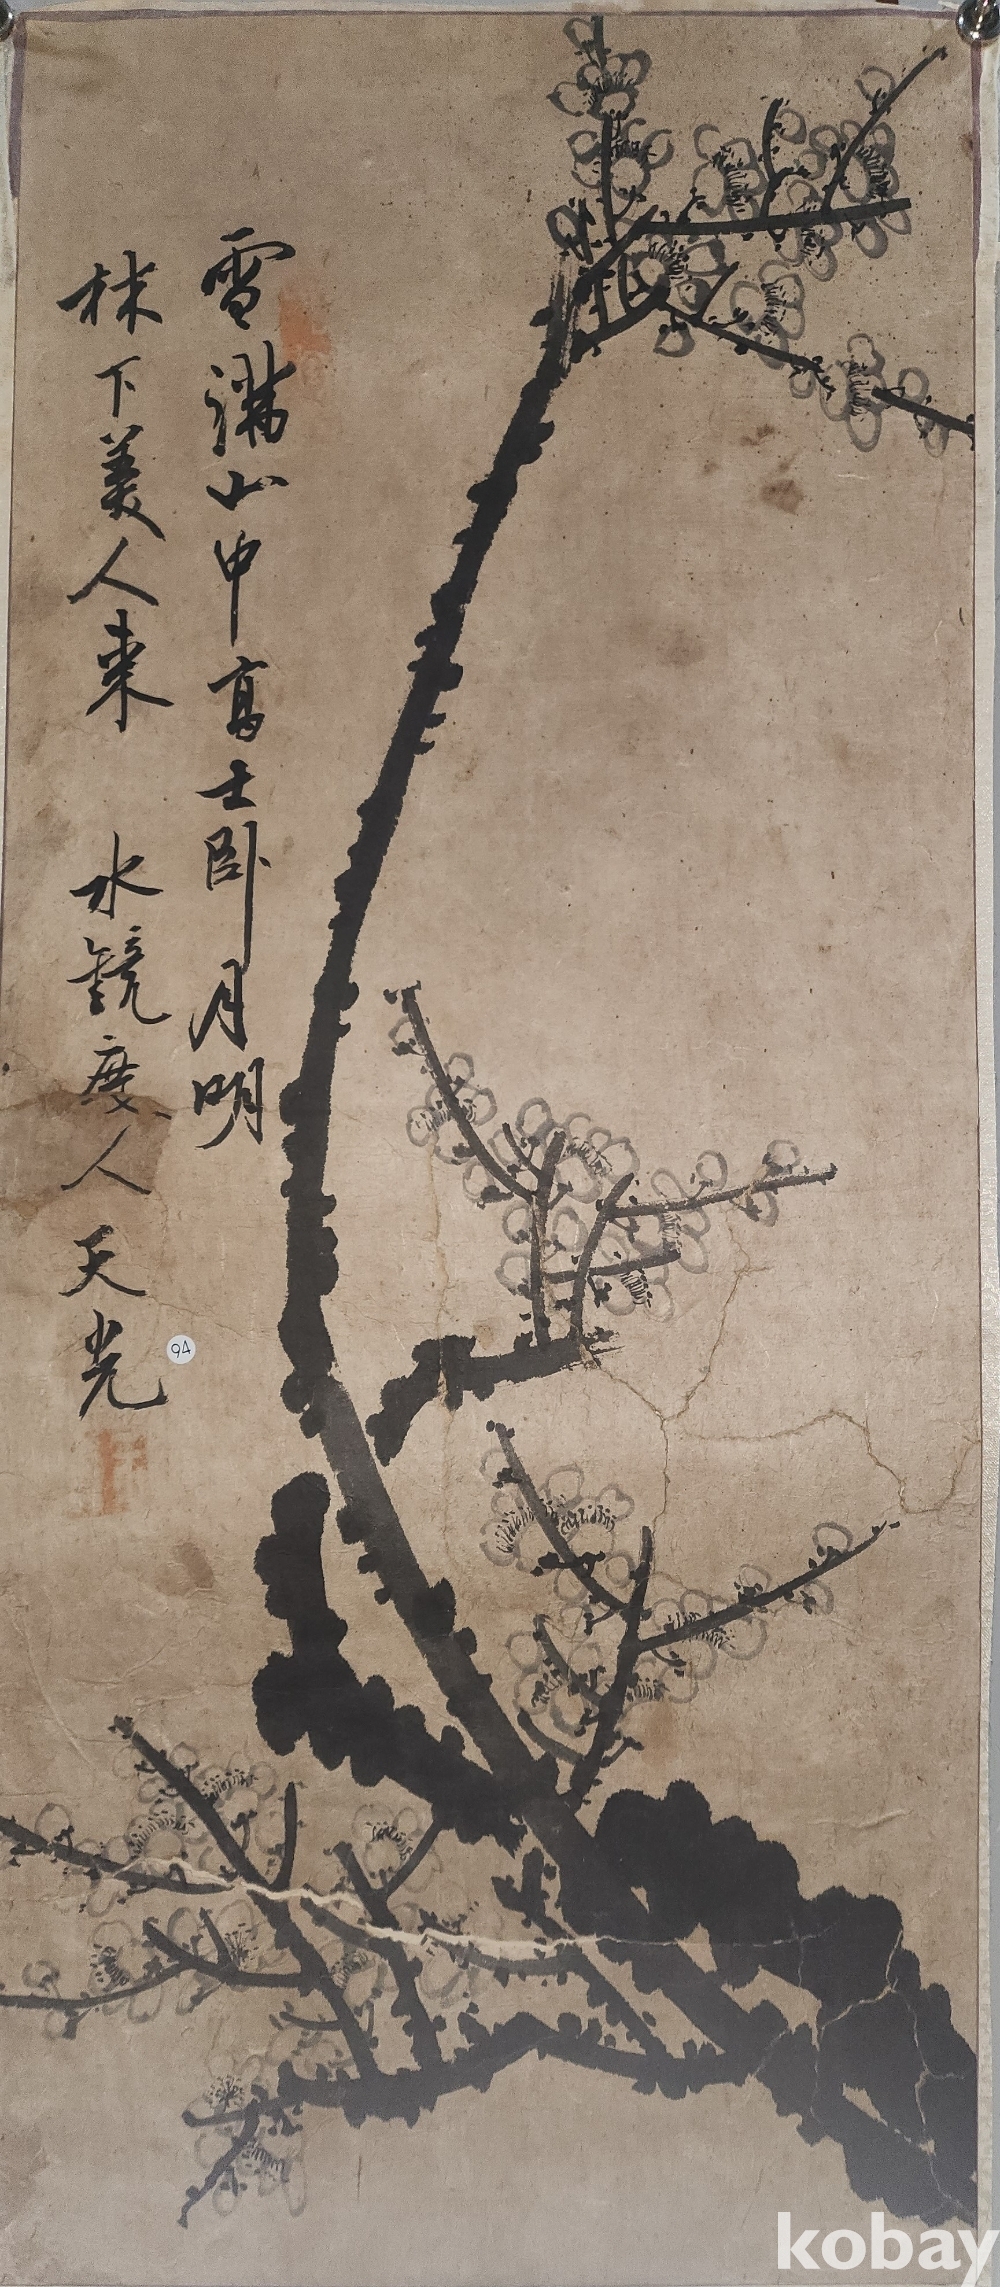 雪滿山中高士臥月明
林下美人來 水鏡度人 天光
94
kobay